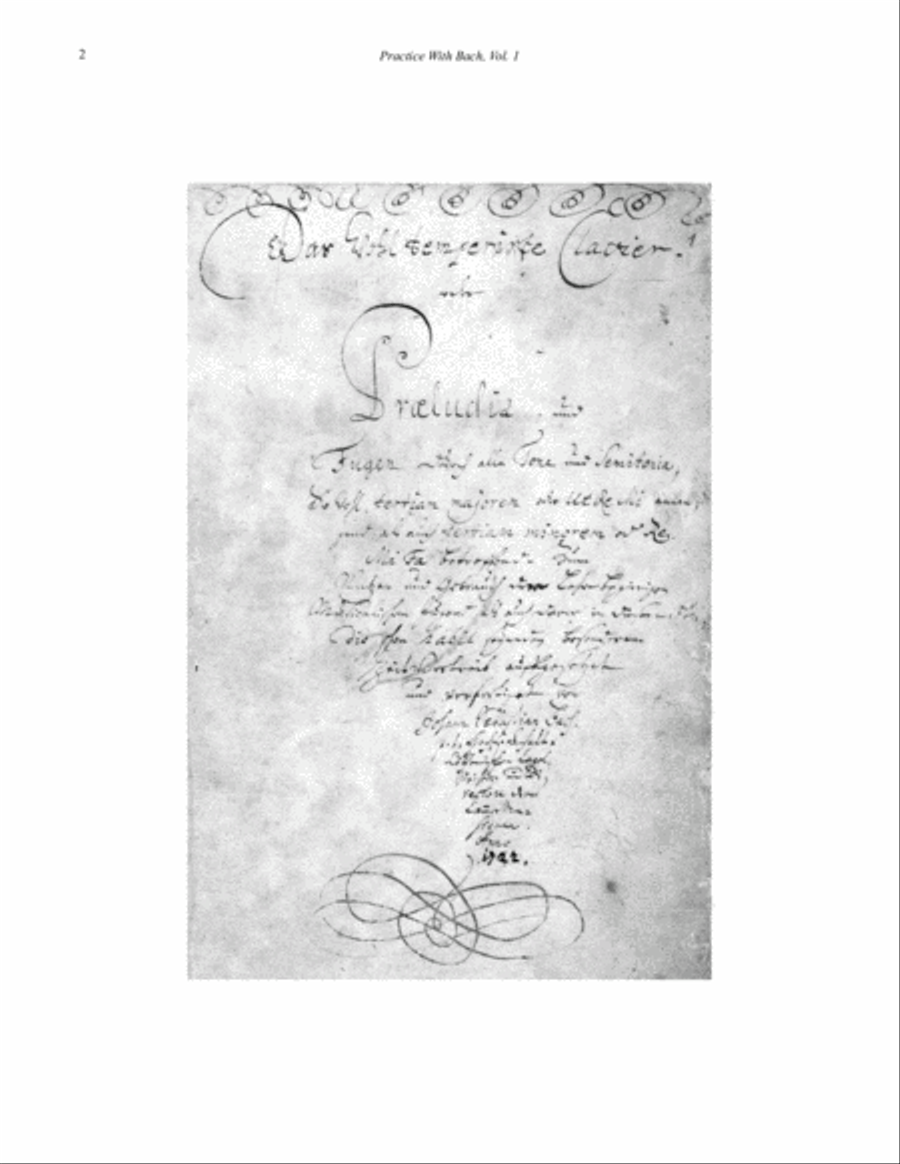 2
Practice With Bach, Vol. 1
Das Wohl temperirte Clavier.
oder
Præludia, und
Fugen durch alle Tone und Semitonia,
So wohl tertiam majorem oder Ut Re Mi anlan-
gend, als auch tertiam minorem oder Re
Mi Fa betreffend. Zum
Nutzen und Gebrauch der Lehrbegierigen
Musicalischen Jugend als auch derer in diesem
studio schon habil seyenden besonderem
Zeit Vertreib auffgesetzet
und verfertiget von
Johann Sebastian Bach.
Anno
1722.